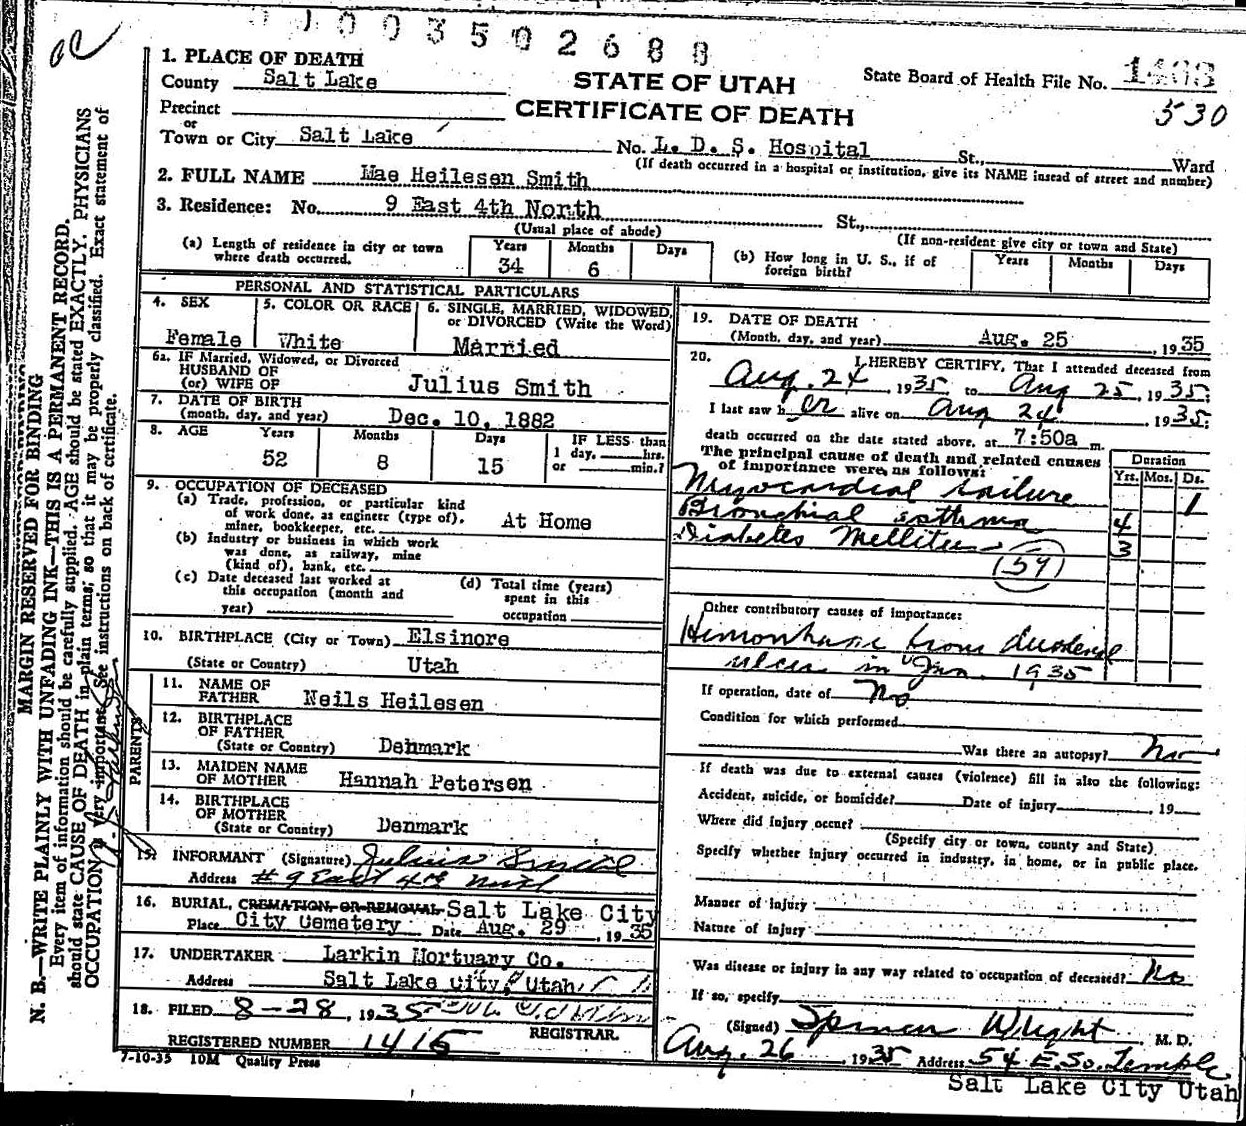 0 0 0 3 5 0 2 6 8 8
1. PLACE OF DEATH
County Salt Lake
STATE OF UTAH
CERTIFICATE OF DEATH
State Board of Health File No.
530
Precinct
or
Town or City Salt Lake No. L. D. S. Hospital St., Ward
(If death occurred in a hospital or institution, give its NAME insead of street and number)
2. FULL NAME Mae Heilesen Smith
3. Residence: No. 9 East 4th North St.,
(Usual place of abode)
(If non-resident give city or town and State)
(a) Length of residence in city or town where death occurred.
Years Months Days
34 6
(b) How long in U. S., if of foreign birth?
Years Months Days
PERSONAL AND STATISTICAL PARTICULARS
4. SEX
Female
5. COLOR OR RACE
White
6. SINGLE, MARRIED, WIDOWED,
or DIVORCED (Write the Word)
Married
6a. IF Married, Widowed, or Divorced
HUSBAND OF
(or) WIFE OF Julius Smith
7. DATE OF BIRTH
(month, day, and year) Dec. 10, 1882
8. AGE Years Months Days IF LESS than
1 day, hrs.
or min.?
52 8 15
9. OCCUPATION OF DECEASED
(a) Trade, profession, or particular kind
of work done, as engineer (type of),
miner, bookkeeper, etc. At Home
(b) Industry or business in which work
was done, as railway, mine
(kind of), bank, etc.
(c) Date deceased last worked at
this occupation (month and
year)
(d) Total time (years)
spent in this
occupation
10. BIRTHPLACE (City or Town) Elsinore
(State or Country) Utah
PARENTS
11. NAME OF
FATHER Neils Heilesen
12. BIRTHPLACE
OF FATHER
(State or Country) Denmark
13. MAIDEN NAME
OF MOTHER Hannah Petersen
14. BIRTHPLACE
OF MOTHER
(State or Country) Denmark
15. INFORMANT (Signature) Julius Smith
Address # 9 East 4th North
16. BURIAL, CREMATION, OR REMOVAL Salt Lake City
Place City Cemetery Date Aug. 29, 1935
17. UNDERTAKER Larkin Mortuary Co.
Address Salt Lake City, Utah
18. FILED 8-28, 1935
REGISTRAR.
REGISTERED NUMBER 1416
7-10-35 10M Quality Press
19. DATE OF DEATH
(Month, day, and year) Aug. 25, 1935
20. I HEREBY CERTIFY, That I attended deceased from
Aug. 24, 1935 to Aug 25, 1935;
I last saw her alive on Aug 24, 1935;
death occurred on the date stated above, at 7:50a m.
The principal cause of death and related causes
of importance were as follows:
Duration
Yrs. Mos. Ds.
Myocardial failure 1
Bronchial asthma 4
Diabetes Mellitus 3
(59)
Other contributory causes of importance:
Hemorrhage from duodenal
ulcer in Jan. 1935
If operation, date of No
Condition for which performed
Was there an autopsy? No
If death was due to external causes (violence) fill in also the following:
Accident, suicide, or homicide? Date of injury, 19
Where did injury occur?
(Specify city or town, county and State)
Specify whether injury occurred in industry, in home, or in public place.
Manner of injury
Nature of injury
Was disease or injury in any way related to occupation of deceased? No
If so, specify
(Signed) Spencer Wright, M. D.
Aug. 26, 1935 Address 54 E. So. Temple
Salt Lake City Utah
MARGIN RESERVED FOR BINDING
N. B.—WRITE PLAINLY WITH UNFADING INK—THIS IS A PERMANENT RECORD.
Every item of information should be carefully supplied. AGE should be stated EXACTLY. PHYSICIANS
should state CAUSE OF DEATH in plain terms, so that it may be properly classified. Exact statement of
OCCUPATION is very important. See instructions on back of certificate.